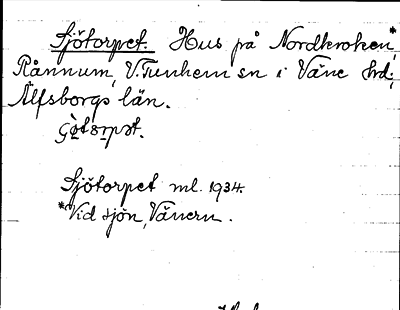 Sjötorpet. Hus på Nordkroken*,
Rånnum, V. Tunhem sn i Väne hrd,
Älfsborgs län.
Sjötorpet ml. 1934.
*Vid sjön, Vänern.